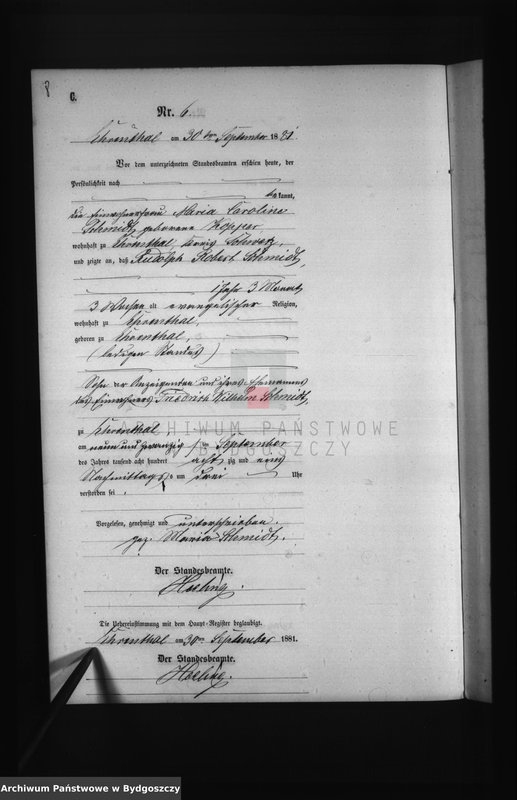 8
C.
Nr. 6.
Ehrenthal am 30ten September 1881.
Vor dem unterzeichneten Standesbeamten erschien heute, der
Persönlichkeit nach
bekannt,
die Einwohnerfrau Maria Caroline
Schmidt geborene Kopper
wohnhaft zu Ehrenthal, Kreis Schwetz,
und zeigte an, daß Rudolph Robert Schmidt,
1 Jahr 3 Monat
3 Wochen alt evangelischer Religion,
wohnhaft zu Ehrenthal,
geboren zu Ehrenthal,
(ledigen Standes)
Sohn der Anzeigenden und ihres Ehemannes
des Einwohners Friedrich Wilhelm Schmidt,
zu Ehrenthal
am neun und zwanzigsten September
des Jahres tausend acht hundert achtzig und eins
Nachmittags um drei Uhr
verstorben sei.
Vorgelesen, genehmigt und unterschrieben.
gez. Maria Schmidt.
Der Standesbeamte.
Die Uebereinstimmung mit dem Haupt-Register beglaubigt.
Ehrenthal am 30ten September 1881.
Der Standesbeamte.
ARCHIWUM PAŃSTWOWE
W BYDGOSZCZY
Archiwum Państwowe w Bydgoszczy